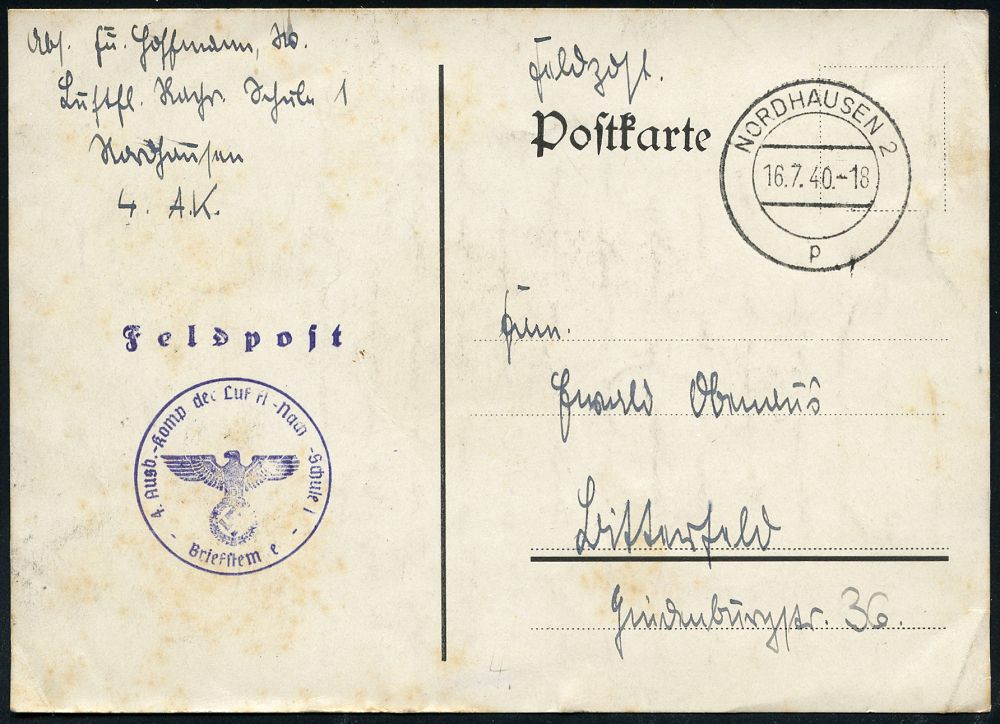 Abs. Fu. Hoffmann, W.
Luftfl. Nachr. Schule 1
Nordhausen
4. A.K.
Feldpost
4. Ausb.-Komp der Luft fl-Nach -Schule 1
- Briefstem e -
Feldpost.
Postkarte
NORDHAUSEN 2
16.7.40.-18
p
Ewald Obenaus
Bitterfeld
Hindenburgstr. 36.
4